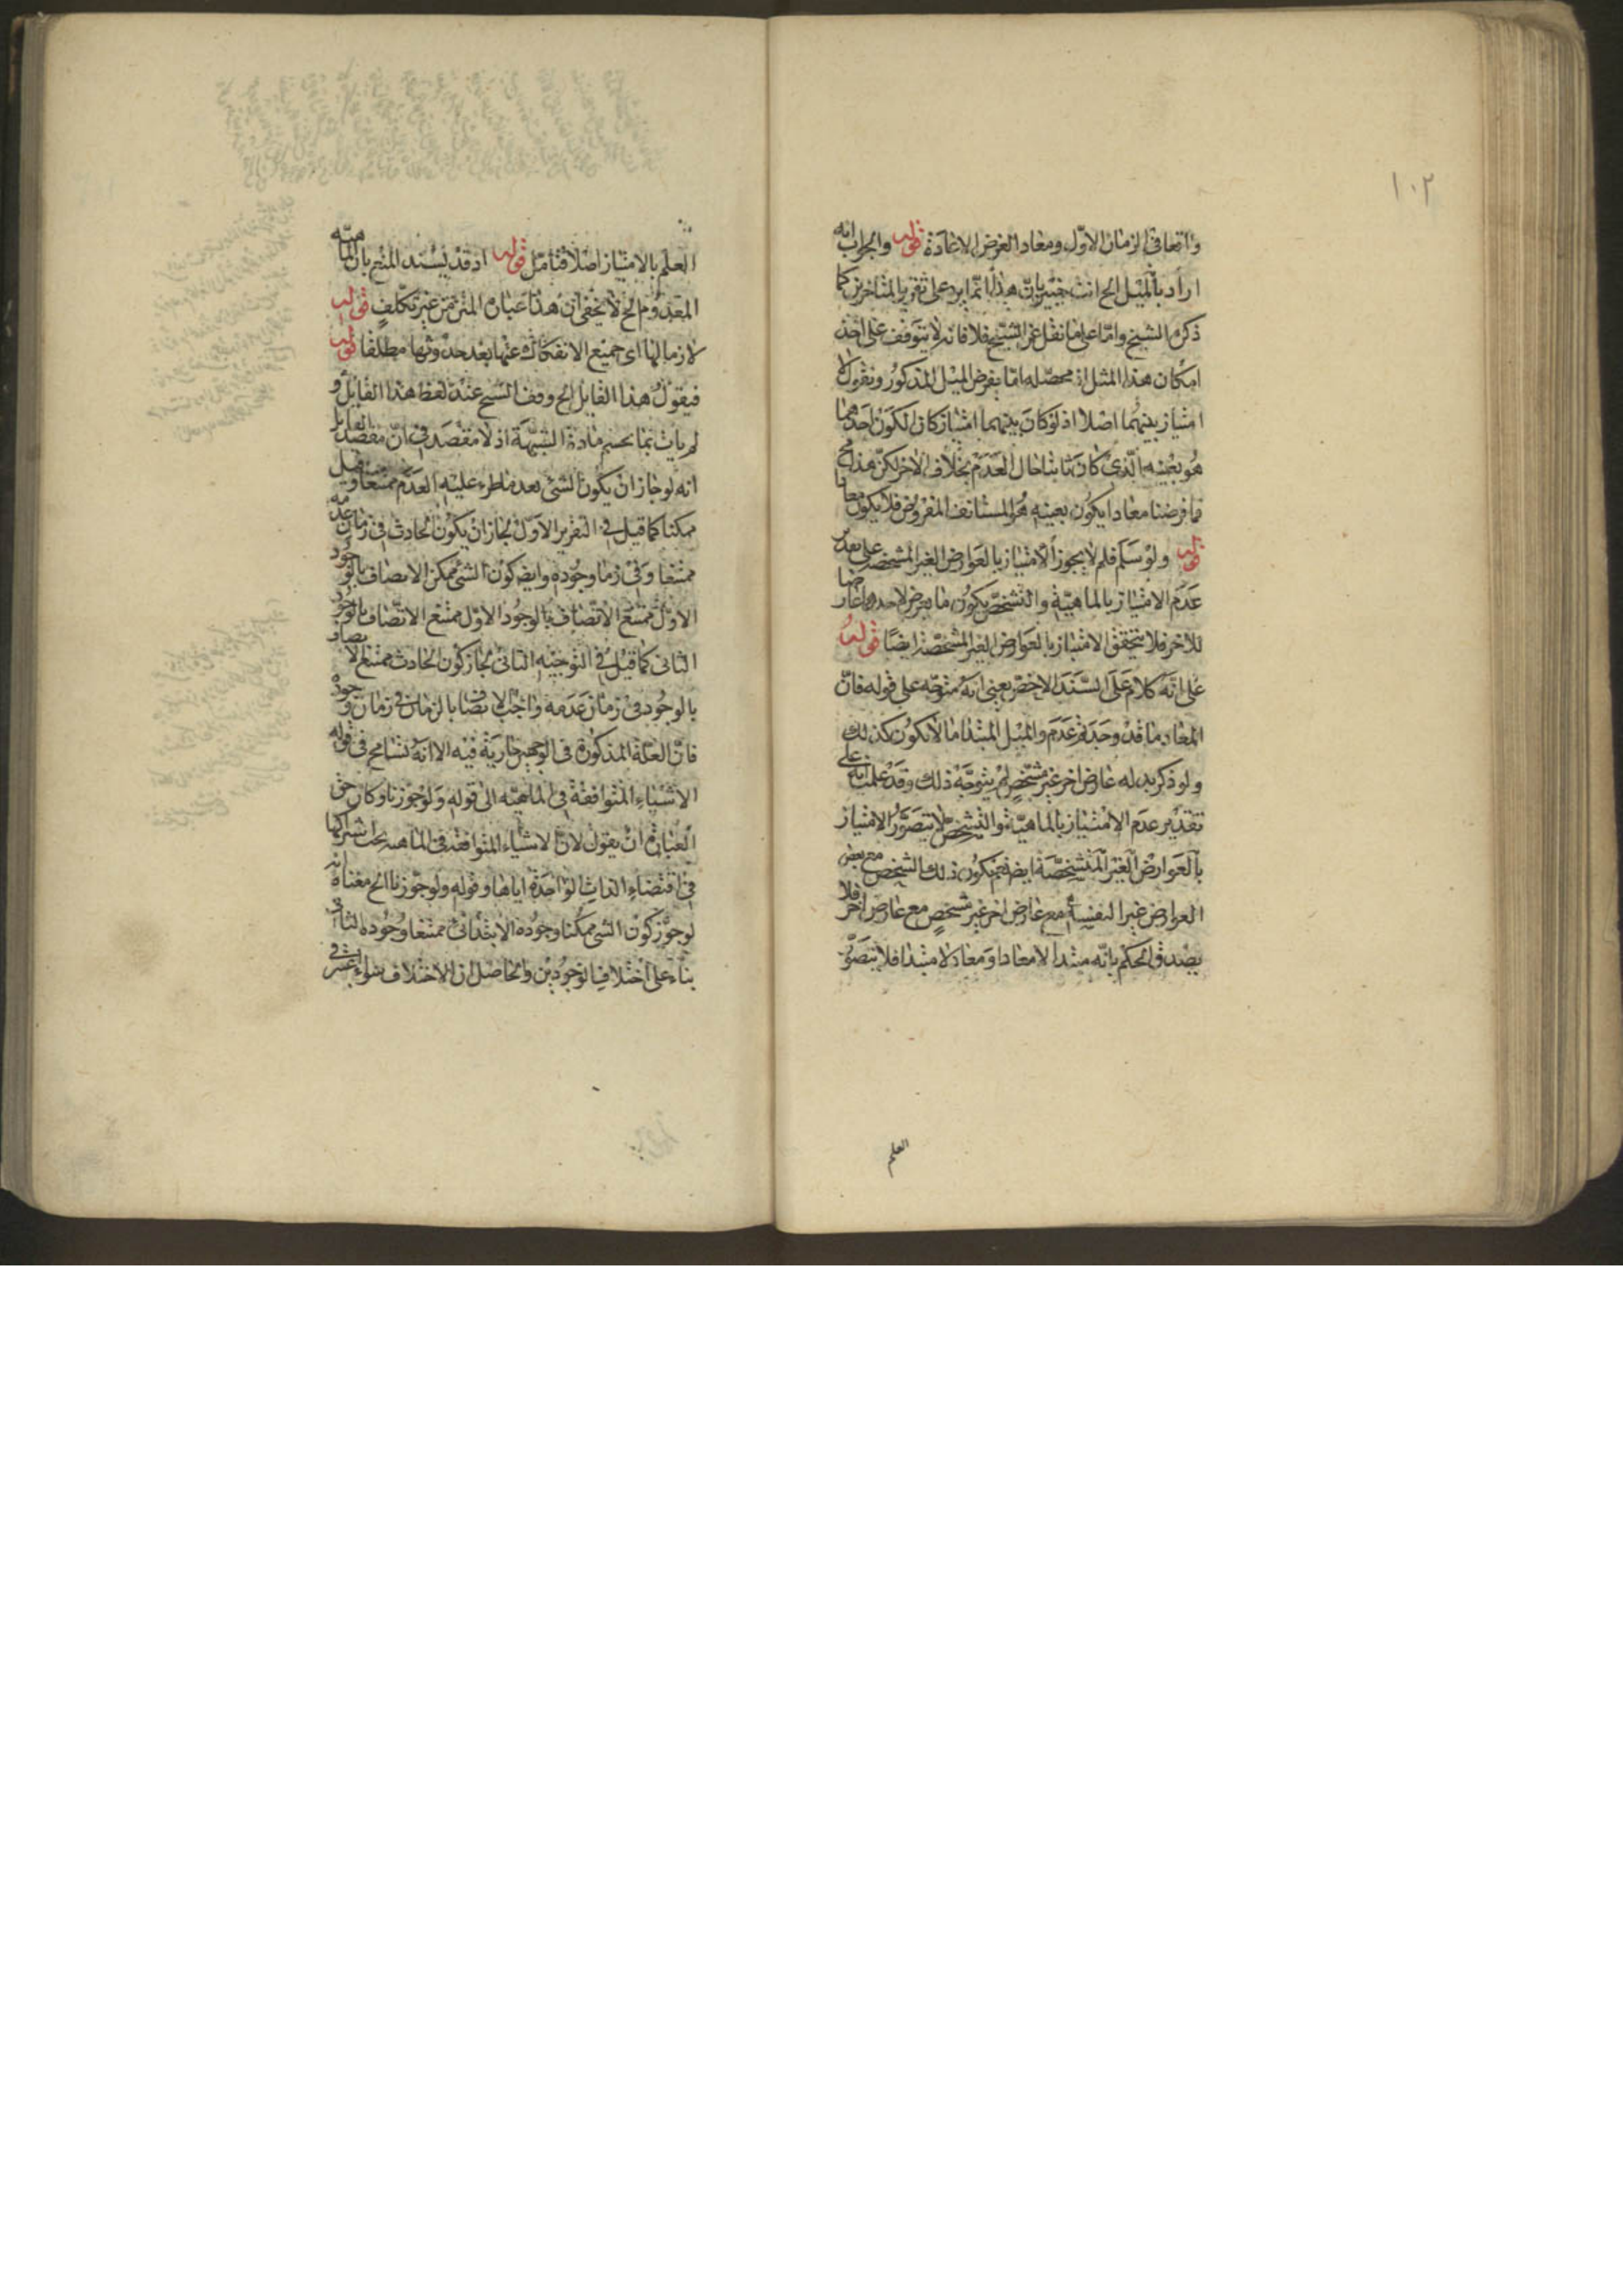 ١٠٢
واقعا فى الزمان الاول ومعادا لغرض الاعادة قوله والجواب انه
اراد بالمثل الخ انت خبير بان هذا انما يرد على تقرير المتاخرين كما
ذكره الشيخ واما على ما نقل عن الشيخ فلا فانه لا يتوقف على اخذ
امكان هذا المثل اذ محصله انا نفرض المثل المذكور ونقول لا
امتياز بينهما اصلا اذ لو كان بينهما امتياز كان لكون احدهما
هو بعينه الذى كان ثابتا حال العدم بخلاف الاخر لكن هذا مح
فما فرضنا معادا يكون بعينه هو المستانف المفروض فلا يكون معادا
قوله ولو سلم فلم لا يجوز الامتياز بالعوارض الغير المشخصة على تقدير
عدم الامتياز بالماهية والتشخص يكون ما يعرض لاحدهما عارضا
للاخر فلا يتحقق الامتياز بالعوارض الغير المشخصة ايضا قوله
على انه كلام على السند الاخص يعنى انه متوجه على قوله فان
المعاد ما قد وجد فعدم والمثل المبتدا ما لا يكون كذلك
ولو ذكر بدله عارض اخر غير مشخص لم يتوجه ذلك وقد علمت انه على
تقدير عدم الامتياز بالماهية والتشخص لا يتصور الامتياز
بالعوارض الغير المتشخصة ايضا فيكون ذلك الشخص مع بعض
العوارض غير النفسه مع عارض اخر غير مشخص مع عارض اخر فلا
يصدق الحكم بانه مبتدا لا معادا ومعاد لا مبتدا فلا يتصور
العلم
العلم بالامتياز اصلا فتامل قوله اذ قد يسند المنع بان الماهية
المعدوم الخ لا يخفى ان هذا عبارة المتن من غير تكلف قوله
لازما لها اى جميع الانفكاك عنها بعد حدوثها مطلقا قوله
فيقول هذا القايل الخ وقف الشيخ عند لفظ هذا القايل و
لم يات بما يحسم مادة الشبهة اذ لا مقصد فى ان مقصد القايل
انه لو جاز ان يكون الشئ بعد ما طرء عليه العدم ممتنعا وقبل
ممكنا كما قيل فى التقرير الاول لجاز ان يكون الحادث فى زمان عدمه
ممتنعا وفى زمان وجوده وايضا كون الشئ ممكن الاتصاف بالوجود
الاول ممتنع الاتصاف بالوجود الاول ممتنع الاتصاف بالوجود
الثانى كما قيل فى التوجيه الثانى لجاز كون الحادث ممتنع الاتصاف
بالوجود فى زمان عدمه واجب الاتصاف بالزمان فى زمان وجوده
فان العلة المذكورة فى الوجهين جارية فيه الا انه تسامح فى قوله
الاشياء المتوافقة فى الماهية الى قوله ولو جوزنا وكان حق
العبارة ان يقول لان الاشياء المتوافقة فى الماهية يجب اشتراكها
فى اقتضاء الذات الواحدة اياها وقوله ولو جوزنا الخ معناه انه
لو جوز كون الشئ ممكنا وجوده الابتدائى ممتنعا وجوده الثانى
بناء على اختلاف الوجودين والحاصل ان الاختلاف سواء